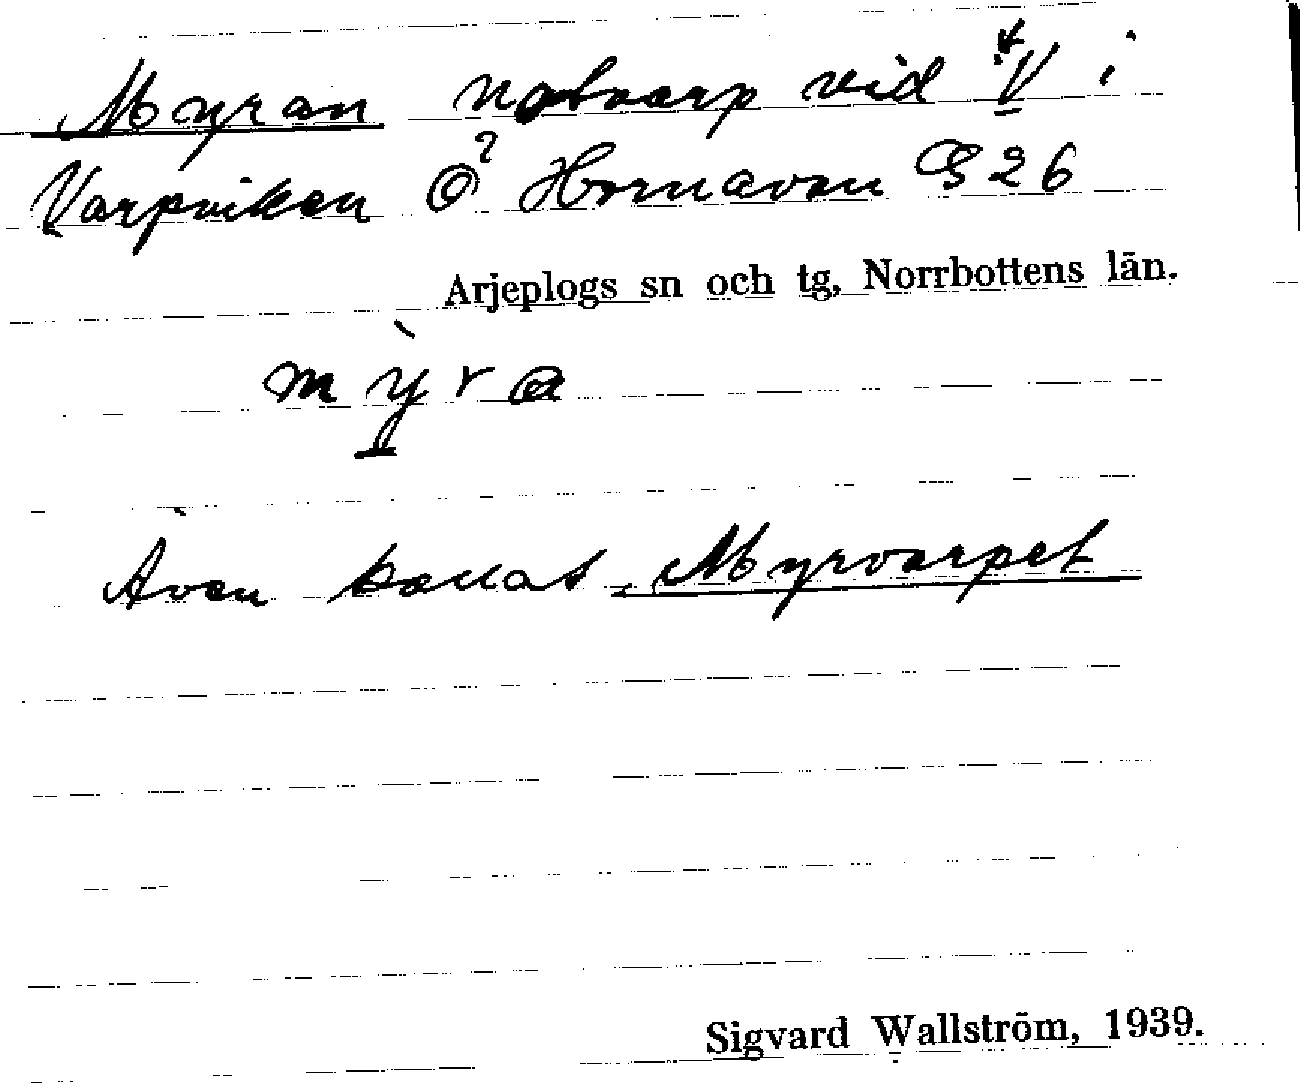 Myran notvarp vid V i
Varpviken Ö? Hornavan G 26
Arjeplogs sn och tg, Norrbottens län.
m ỳ̠ r a
Även kallat Myrvarpet
Sigvard Wallström, 1939.